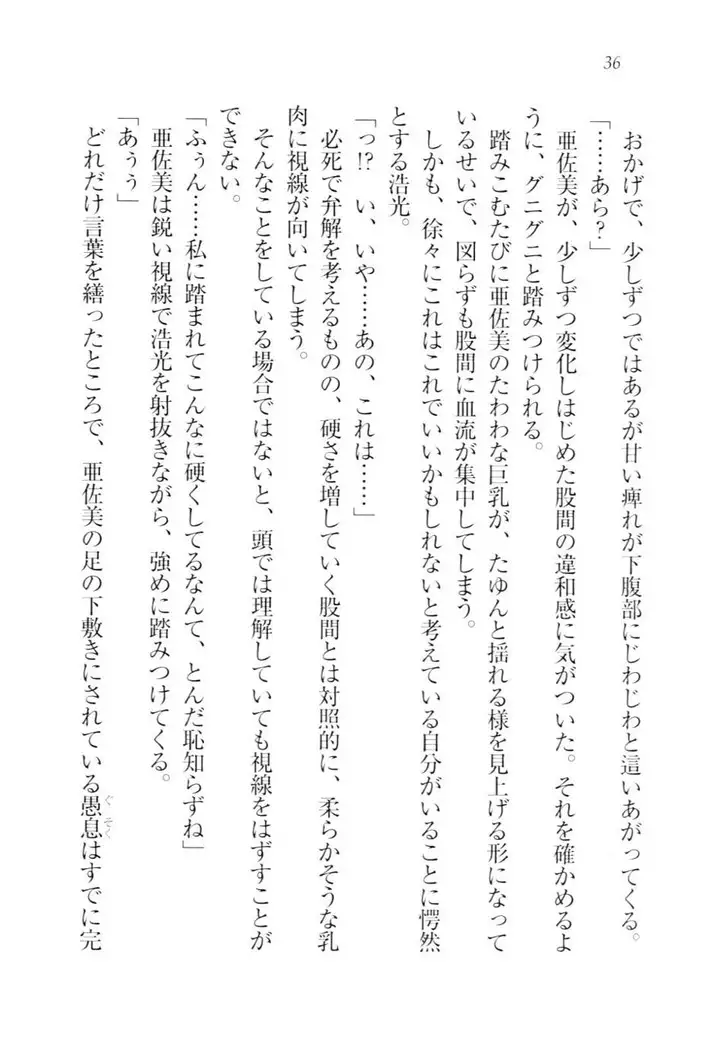 36
おかげで、少しずつではあるが甘い痺れが下腹部にじわじわと這いあがってくる。
「……あら？」
亜佐美が、少しずつ変化しはじめた股間の違和感に気がついた。それを確かめるよ
うに、グニグニと踏みつけられる。
踏みこむたびに亜佐美のたわわな巨乳が、たゆんと揺れる様を見上げる形になって
いるせいで、図らずも股間に血流が集中してしまう。
しかも、徐々にこれはこれでいいかもしれないと考えている自分がいることに愕然
とする浩光。
「っ!?　い、いや……あの、これは……」
必死で弁解を考えるものの、硬さを増していく股間とは対照的に、柔らかそうな乳
肉に視線が向いてしまう。
そんなことをしている場合ではないと、頭では理解していても視線をはずすことが
できない。
「ふぅん……私に踏まれてこんなに硬くしてるなんて、とんだ恥知らずね」
亜佐美は鋭い視線で浩光を射抜きながら、強めに踏みつけてくる。
「あぅぅ」
どれだけ言葉を繕ったところで、亜佐美の足の下敷きにされている愚息はすでに完
ぐそく